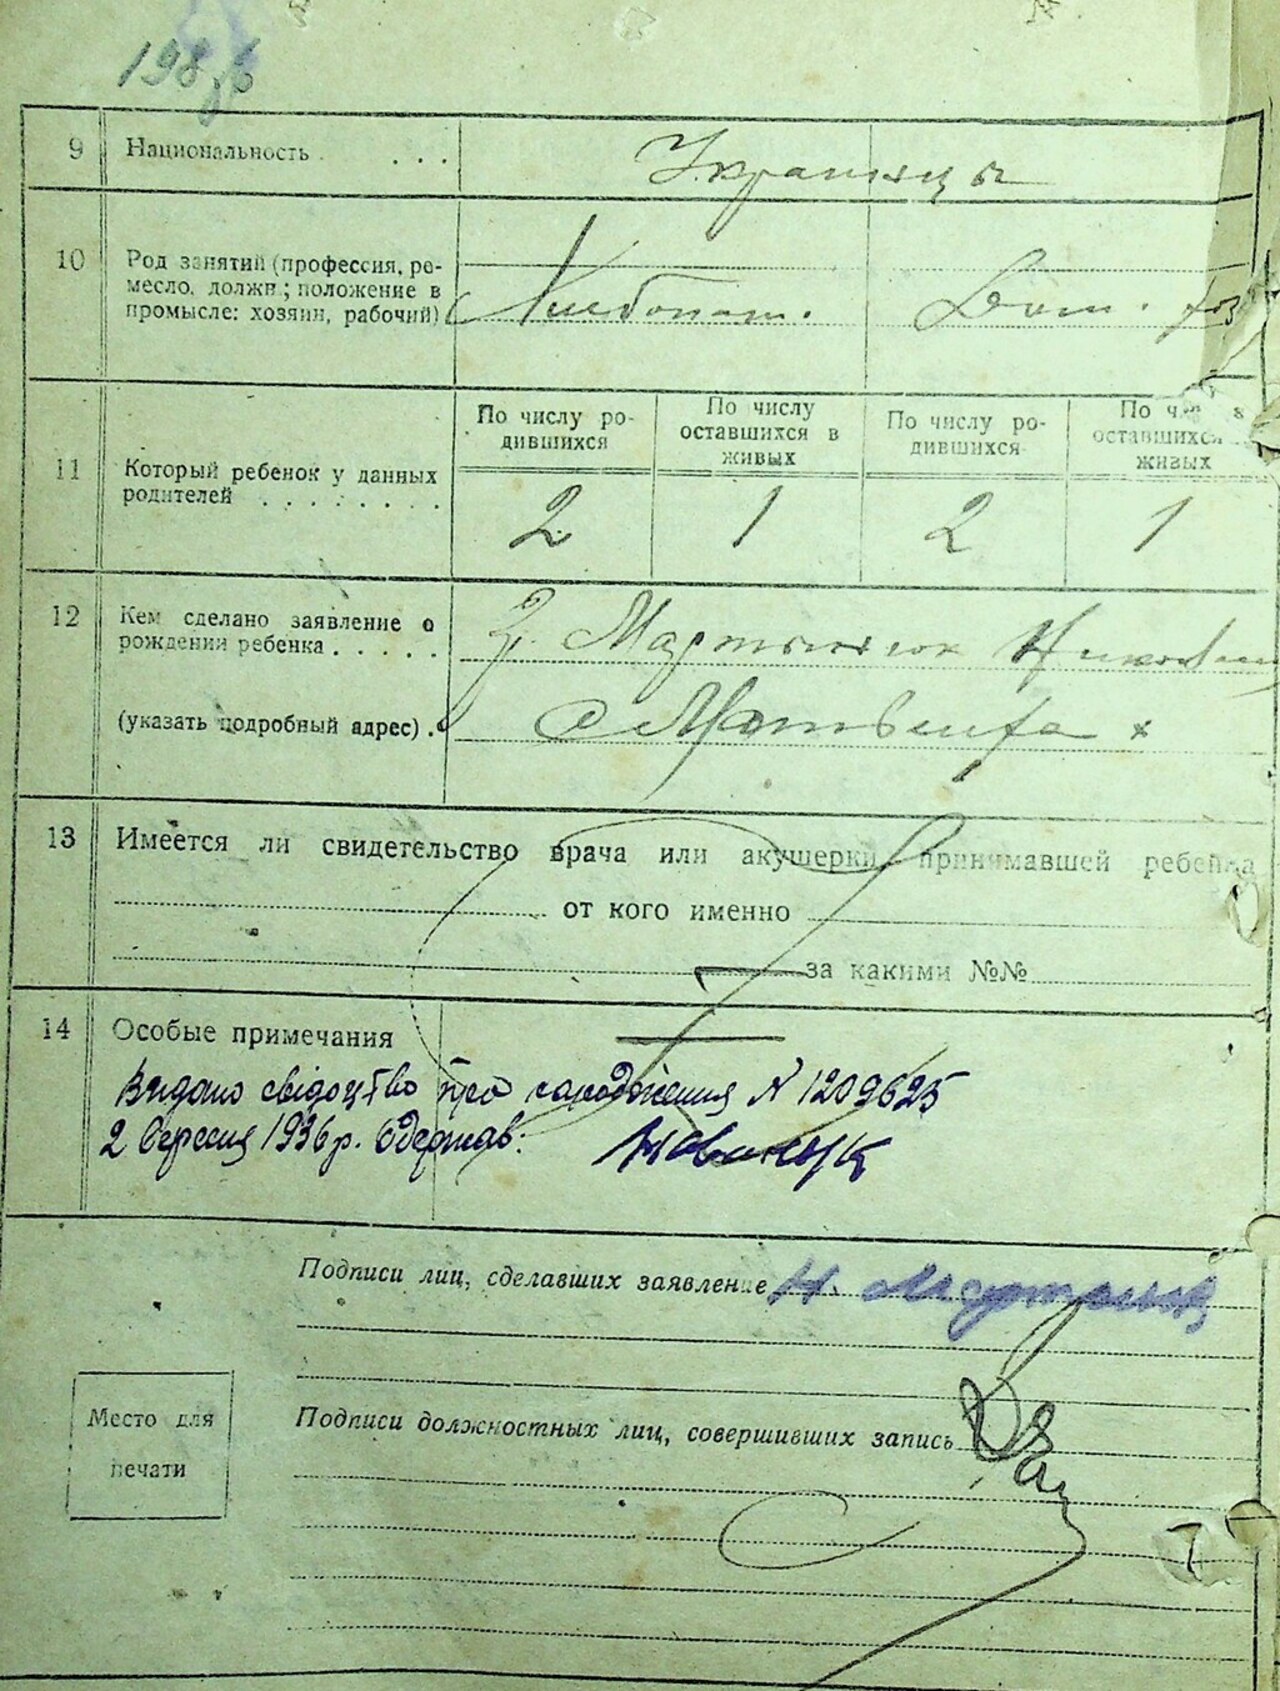 198
9 Национальность . . . . Украинцы
10 Род занятий (профессия, ре-
месло, должн.; положение в
промысле: хозяин, рабочий) Хлебопаш. Дом. хоз
11 Который ребенок у данных
родителей . . . . . . . .
По числу ро-
дившихся
По числу
оставшихся в
живых
По числу ро-
дившихся
По ч
оставшихся
живых
2 1 2 1
12 Кем сделано заявление о
рождении ребенка . . . . . Мартынюк Николай
(указать подробный адрес) . с
13 Имеется ли свидетельство врача или акушерки принимавшей ребенка
от кого именно
за какими №№
14 Особые примечания
Видано свідоцтво про народження N 1209625
2 вересня 1936 р. Одержав:
Подписи лиц, сделавших заявление Н. Мартынюк
Подписи должностных лиц, совершивших запись
Место для
печати